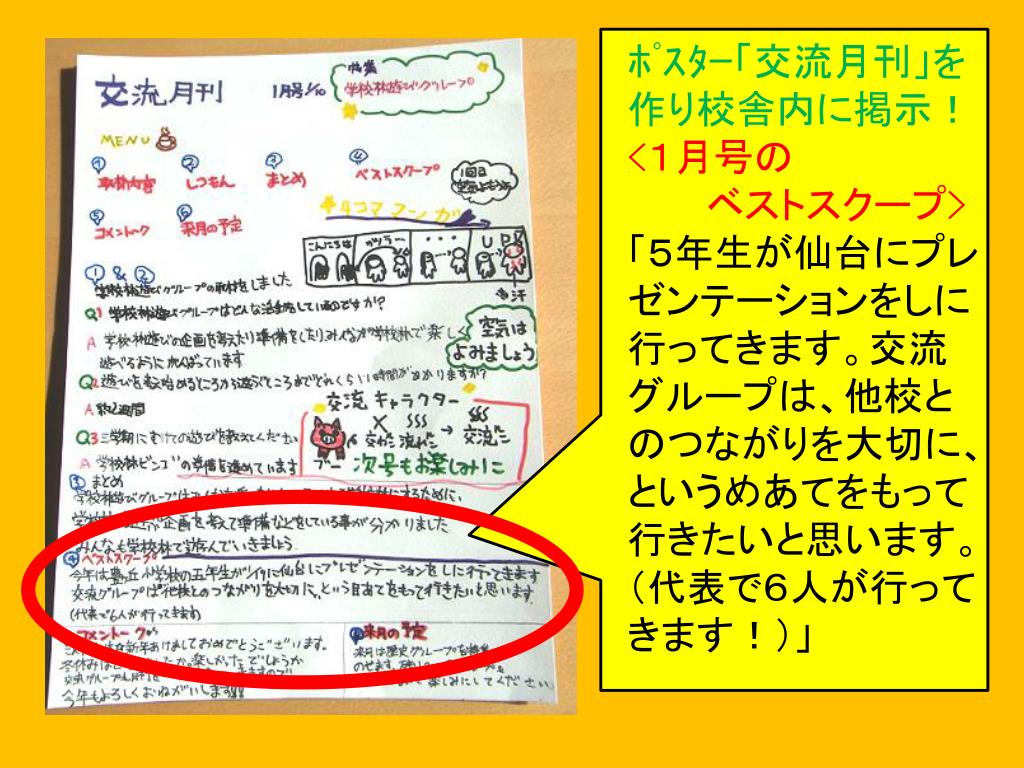 交流月刊
1月号 1/10
特集
学校林遊びグループ
MENU
① ② ③ ④
取材内容 しつもん まとめ ベストスクープ
1回目
空気よもう
⑤ ⑥
コメントーク 来月の予定
4コママンガ
こんにちは ガラー ・・・ UP
汗
① & ②
学校林遊びグループの取材をしました
Q1 学校林遊びグループはどんな活動をしているのですか?
A 学校林遊びの企画を考えたり準備をしたりみんなが学校林で楽しく
遊べるようにがんばっています
空気は
よみましょう
Q2 遊びを考え始めるところから遊ぶところまでどれくらい時間がかかりますか?
A 約2週間
交流キャラクター
交わた 流れた → 交流した
ブー 次号もお楽しみに
Q3 三学期にむけての遊びを教えてください
A 学校林ビンゴの準備を進めています
③ まとめ
学校林遊びグループは
企画を考えて準備などをしている事が分かりました
みんなも学校林で遊んでいきましょう
④ ベストスクープ
今年は 小学校の五年生が 仙台にプレゼンテーションをしに行ってきます
交流グループは他校とのつながりを大切に、という目あてをもって行きたいと思います。
(代表で6人が行ってきます)
コメントーク
新年あけましておめでとうございます。
冬休みは 楽しかったでしょうか
今年もよろしくおねがいします!!!
来月の予定
来月は歴史グループを
のせます。
楽しみにしてください
ﾎﾟｽﾀｰ「交流月刊」を
作り校舎内に掲示！
<１月号の
ベストスクープ>
「５年生が仙台にプレ
ゼンテーションをしに
行ってきます。交流
グループは、他校と
のつながりを大切に、
というめあてをもって
行きたいと思います。
（代表で６人が行って
きます！）」